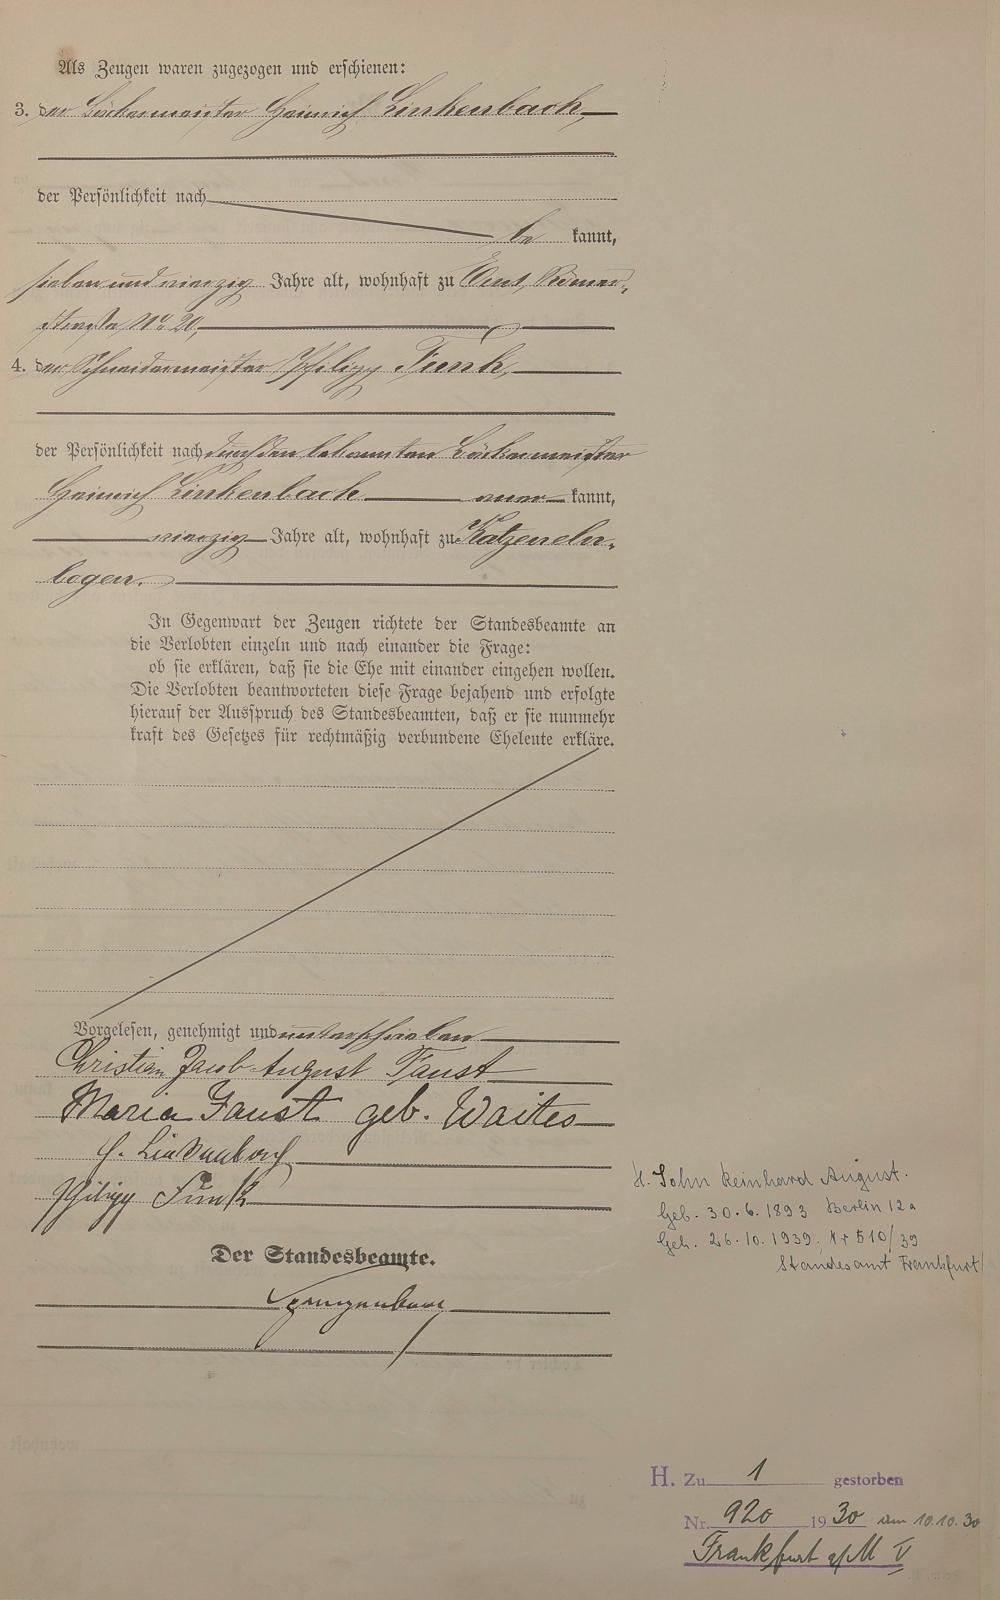 Als Zeugen waren zugezogen und erschienen:
3. der Bäckermeister Heinrich Linkenbach,
der Persönlichkeit nach
be kannt,
sieben und vierzig Jahre alt, wohnhaft zu Ems, Römer-
straße No 20,
4. der Schneidermeister Philipp Funk,
der Persönlichkeit nach durch den bekannten Bäckermeister
Heinrich Linkenbach aner kannt,
vierzig Jahre alt, wohnhaft zu Katzeneln-
bogen.
In Gegenwart der Zeugen richtete der Standesbeamte an
die Verlobten einzeln und nach einander die Frage:
ob sie erklären, daß sie die Ehe mit einander eingehen wollen.
Die Verlobten beantworteten diese Frage bejahend und erfolgte
hierauf der Ausspruch des Standesbeamten, daß er sie nunmehr
kraft des Gesetzes für rechtmäßig verbundene Eheleute erkläre.
Vorgelesen, genehmigt und unterschrieben
Christian Jacob August Faust
Maria Faust geb. Waites
H. Linkenbach
Philipp Funk
Der Standesbeamte.
H. Sohn Reinhard August.
Geb. 30.6.1893 Berlin 12a
Geh. 26.10.1939, Nr 510/39
Standesamt Frankfurt/
H. Zu 1 gestorben
Nr. 920 1930 am 10.10.30
Frankfurt a/M V